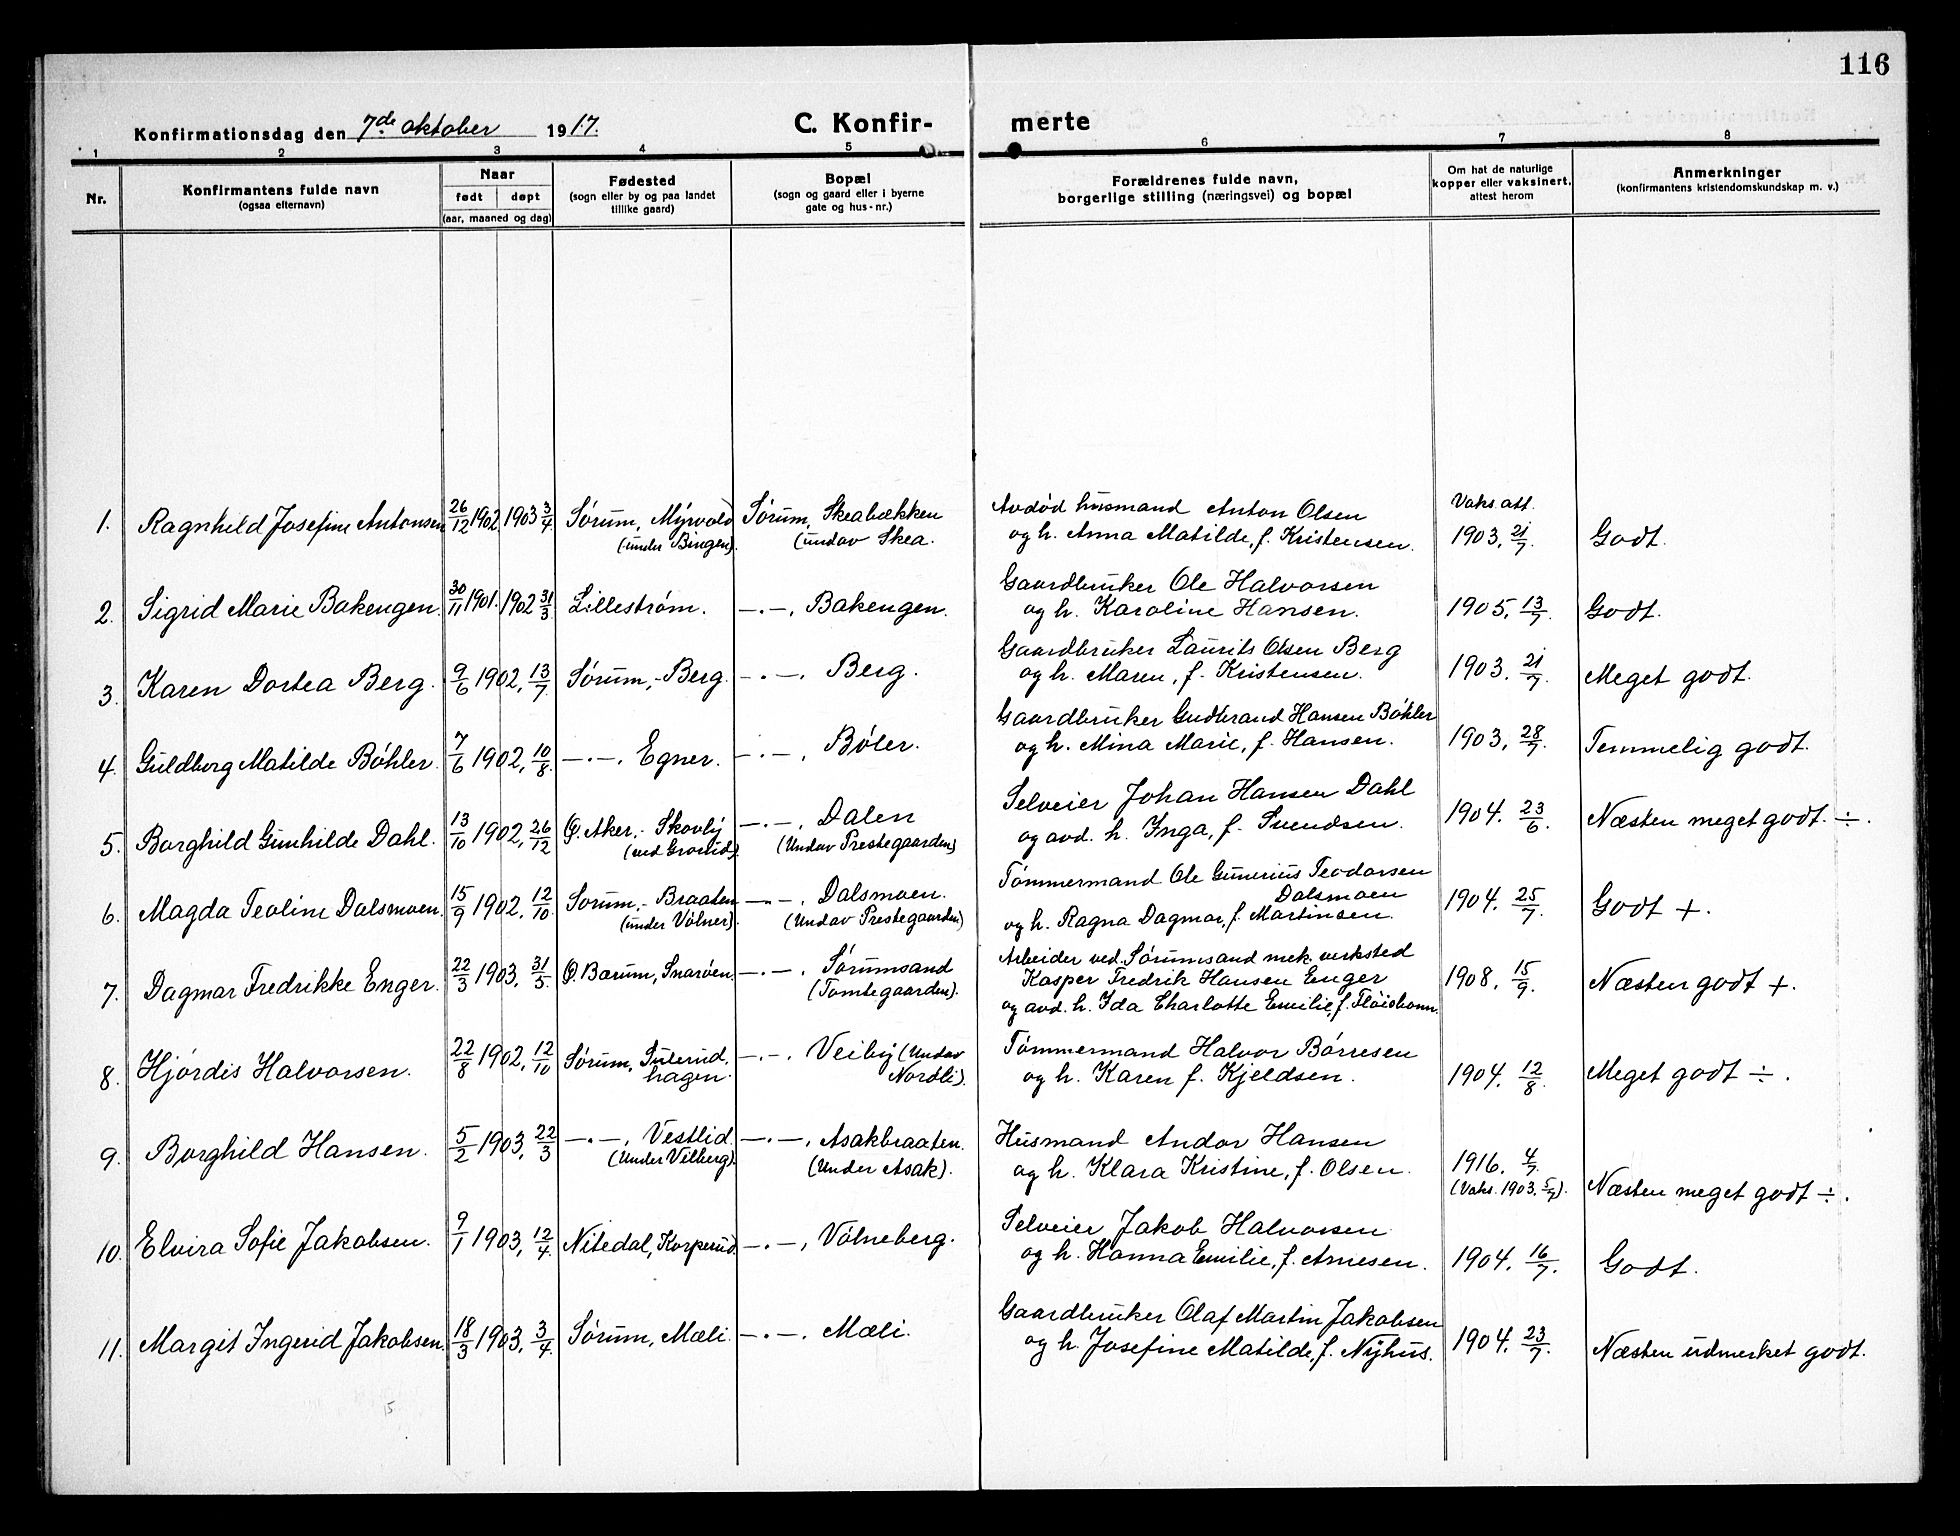 116
Konfirmationsdag den 7de oktober 1917.
C. Konfirmerte
1 2 3 4 5 6 7 8
Nr.
Konfirmantens fulde navn
(ogsaa efternavn)
Naar
født døpt
(aar, maaned og dag)
Fødested
(sogn eller by og paa landet
tillike gaard)
Bopæl
(sogn og gaard eller i byerne
gate og hus-nr.)
Forældrenes fulde navn,
borgerlige stilling (næringsvei) og bopæl
Om hat de naturlige
kopper eller vaksinert,
attest herom
Anmerkninger
(konfirmantens kristendomskundskap m. v.)
1. Ragnhild Josefine Antonsen 26/12 1902, 1903 3/4 Sørum, Myrvold Sørum, Skeabækken
(under Bingen). (undav Skea.
Avdød husmand Anton Olsen
og h. Anna Matilde, f. Kristensen.
Vaks. att.
1903. 21/7. Godt.
2. Sigrid Marie Bakengen. 30/11 1901. 1902 31/3 Lillestrøm. —·—, Bakengen.
Gaardbruker Ole Halvorsen
og h. Karoline Hansen.
1905. 13/7. Godt.
3. Karen Dortea Berg. 9/6 1902, 13/7 Sørum, Berg. —·—, Berg.
Gaardbruker Laurits Olsen Berg
og h. Maren, f. Kristensen.
1903. 21/7. Meget godt.
4. Guldborg Matilde Bøhler. 7/6 1902, 10/8. —·—, Egner. —·—, Bøler.
Gaardbruker Gudbrand Hansen Bøhler
og h. Mina Marie, f. Hansen.
1903. 28/7. Temmelig godt.
5. Borghild Gunhilde Dahl. 13/10 1902, 26/12 Ø. Aker, Skovly —·—, Dalen
(ved Grorud). (Undav Prestegaarden)
Selveier Johan Hansen Dahl
og avd. h. Inga, f. Svendsen.
1904. 23/6. Næsten meget godt ÷.
6. Magda Teoline Dalsmoen. 15/9 1902, 12/10. Sørum, Braaten —·—, Dalsmoen.
(under Vølner). (Undav Prestegaarden)
Tømmermand Ole Gunerius Teodorsen
Dalsmoen
og h. Ragna Dagmar, f. Martinsen.
1904. 25/7. Godt +.
7. Dagmar Fredrikke Enger. 22/3 1903, 31/5. Ø. Bærum, Snarøen. —·—, Sørumsand
(Tomtegaarden).
Arbeider ved Sørumsand mek. verksted
Kasper Fredrik Hansen Enger
og avd. h. Ida Charlotte Emilie, f. Fløisbonn.
1908. 15/9. Næsten godt +.
8. Hjørdis Halvorsen. 22/8 1902, 12/10 Sørum, Sulerud, —·—, Veiby (Undav
hagen. Nordli).
Tømmermand Halvor Børresen
og h. Karen f. Kjeldsen.
1904. 12/8. Meget godt ÷.
9. Borghild Hansen. 5/2 1903, 22/3 —·—, Vestlid. —·—, Asakbraaten.
(Under Vilberg). (Under Asak).
Husmand Andor Hansen
og h. Klara Kristine, f. Olsen.
1916. 4/7.
(Vaks. 1903. 5/7). Næsten meget godt ÷.
10. Elvira Sofie Jakobsen. 9/1 1903, 12/4. Nitedal, Korperud. —·—, Vølneberg.
Selveier Jakob Halvorsen
og h. Hanna Emilie, f. Arnesen.
1904. 16/7. Godt.
11. Margit Ingerid Jakobsen. 18/3 1903, 3/4. Sørum, Mæli. —·—, Mæli.
Gaardbruker Olaf Martin Jakobsen
og h. Josefine Matilde, f. Nyhus.
1904. 23/7. Næsten udmerket godt.